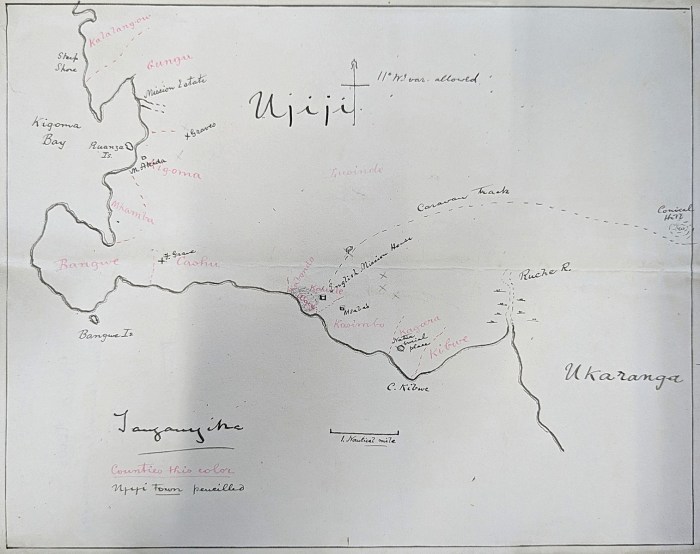 Kazarangow
Gungu
Steep
Shore
Mission Estate
Ujiji
11° W. var. allowed
Kigoma
Bay
Graves
Ruanza
Is.
M. Akida
Kigoma
Caravan Track
Conical
Hill
Bangwe
Grave
English Mission House
Ruche R.
Msaidi
Kasimbo
Kagara
Native
burial
place
Kibwe
Bangwe Is
Ukaranga
C. Kibwe
Tanganyika
1. Nautical mile
Counties this color
Ujiji Town pencilled